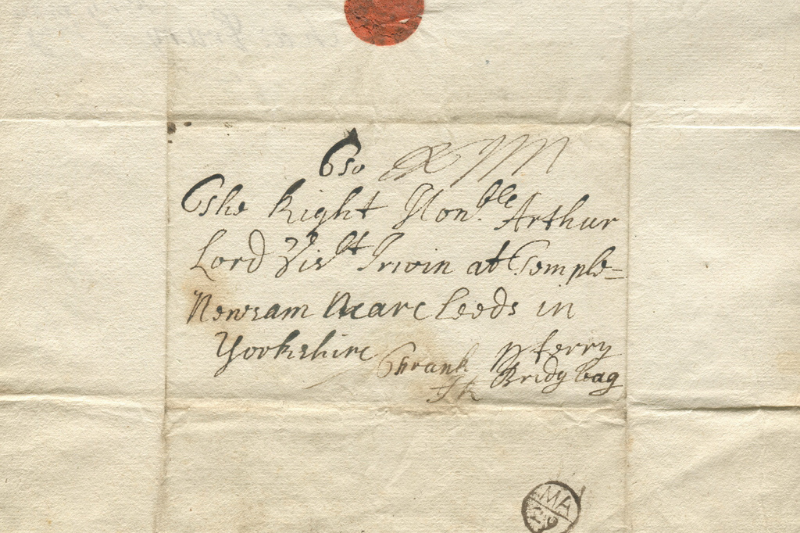 To
The Right Hon.ble Arthur
Lord Vis.t Irwin at Temple=
Newsam Neare Leeds in
Yorkshire
p ferry
Bridg bag
MA